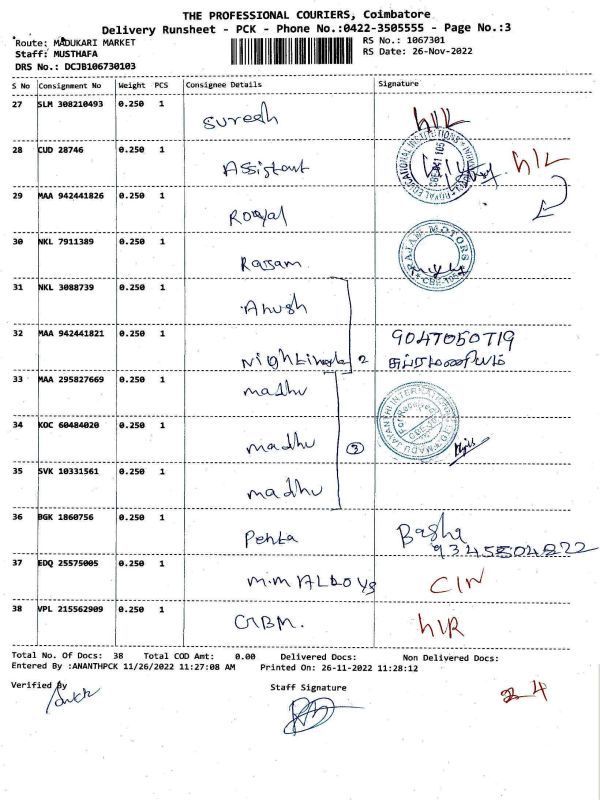 THE PROFESSIONAL COURIERS, Coimbatore
Delivery Runsheet - PCK - Phone No.:0422-3505555 - Page No.:3
Route: MADUKARI MARKET
RS No.: 1067301
Staff: MUSTHAFA
RS Date: 26-Nov-2022
DRS No.: DCJB106730103
S No Consignment No Weight PCS Consignee Details Signature
27 SLM 308210493 0.250 1 Suresh
28 CUD 28746 0.250 1 Assistant
29 MAA 942441826 0.250 1 Royal
30 NKL 7911389 0.250 1 Rajam
RAJAM MOTORS
CBE-105
31 NKL 3088739 0.250 1 Anush
32 MAA 942441821 0.250 1 Nightingale 2 9047050719
சுப்ரமணியம்
33 MAA 295827669 0.250 1 madhu
34 KOC 60484020 0.250 1 madhu 3
35 SVK 10331561 0.250 1 madhu
36 BGK 1860756 0.250 1 Penta Basha
9345504822
37 EDQ 25575005 0.250 1 M.M ALLOYS
38 VPL 215562909 0.250 1 GBM.
Total No. Of Docs: 38 Total COD Amt: 0.00 Delivered Docs: Non Delivered Docs:
Entered By :ANANTHPCK 11/26/2022 11:27:08 AM Printed On: 26-11-2022 11:28:12
Verified By
Staff Signature